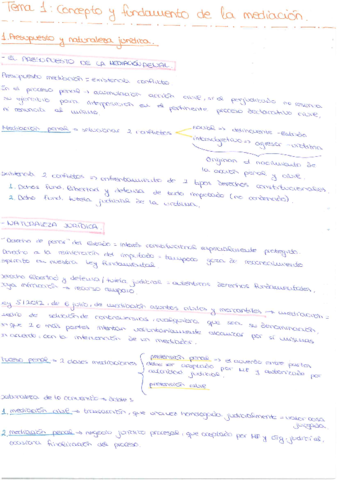 Tema 1: Concepto y fundamento de la mediación.
1. Presupuesto y naturaleza jurídica.
- EL PRESUPUESTO DE LA MEDIACIÓN PENAL
Presupuesto mediación = existencia conflicto
En el proceso penal → acumulación acción civil, si el perjudicado no reserva
su ejercicio para interponerla en el pertinente proceso declarativo civil,
ni renuncia al mismo.
Mediación penal = solucionar 2 conflictos
social = delincuente - Estado
intersubjetivo = agresor - víctima
Originan el nacimiento de
la acción penal y civil.
existencia 2 conflictos = entrelazamiento de 2 tipos derechos constitucionales
1. Dcho fund. libertad y defensa de todo imputado (no condenado)
2. Dcho fund. tutela judicial de la víctima.
- NATURALEZA JURÍDICA
"Derecho de penar" del Estado = interés constitucional especialmente protegido.
Derecho a la reinserción del imputado = tampoco goza de reconocimiento
explícito en nuestra Ley Fundamental
derecho libertad y defensa / tutela judicial = auténticos derechos fundamentales,
cuya infracción → recurso amparo
Ley 5/2012, de 6 julio, de mediación asuntos civiles y mercantiles → mediación =
medio de solución de controversias, cualquiera que sea su denominación,
en que 2 o más partes intentan voluntariamente alcanzar por sí mismas
un acuerdo, con la intervención de un mediador.
Proceso penal → 2 clases mediaciones
pretensión penal → el acuerdo entre partes
debe ser aceptado por MF y autorizado por
autoridad judicial
pretensión civil
naturaleza de lo convenido → dobles
1. mediación civil → transacción, que una vez homologada judicialmente = valor cosa
juzgada
2. mediación penal → negocio jurídico procesal, que aceptado por MF y órg. judicial,
ocasiona finalización del proceso